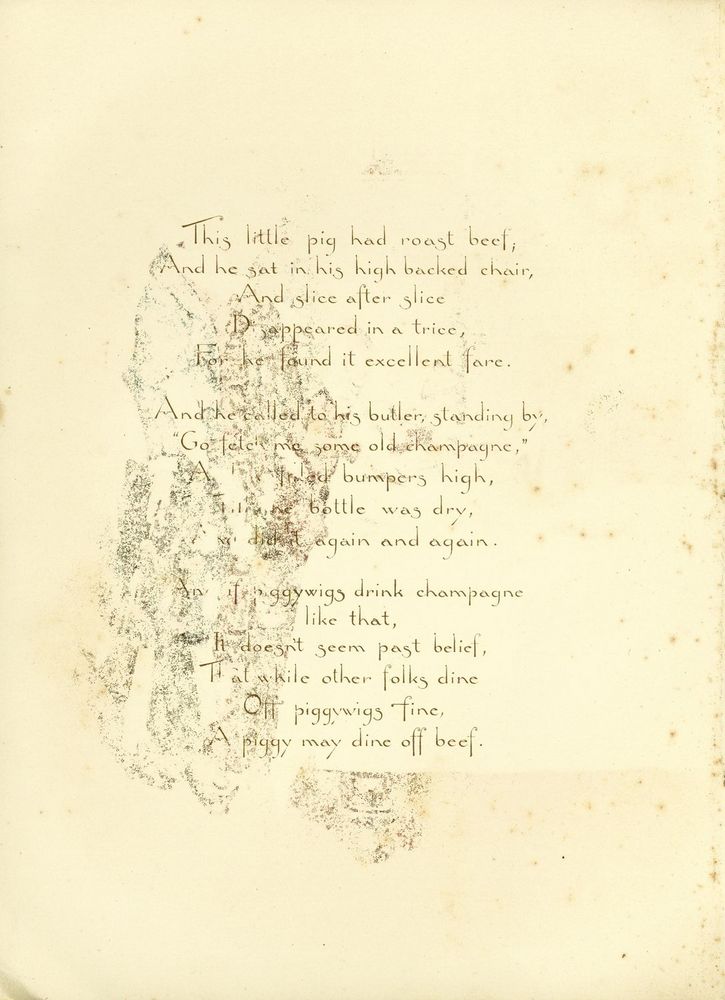 This little pig had roast beef;
And he sat in his high backed chair,
And slice after slice
Disappeared in a trice,
For he found it excellent fare.
And he called to his butler, standing by,
"Go fetch me some old champagne,"
A filled bumpers high,
bottle was dry,
did it again and again.
And if piggywigs drink champagne
like that,
It doesn't seem past belief,
That while other folks dine
Off piggywigs fine,
A piggy may dine off beef.